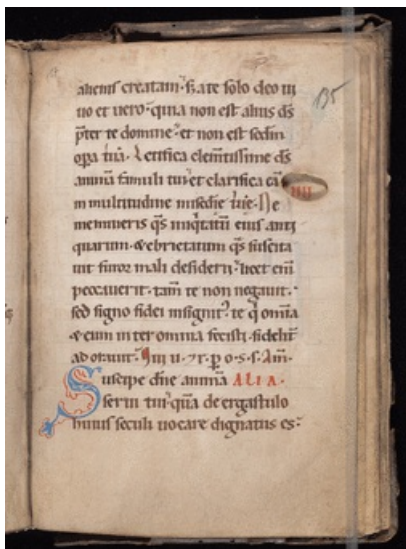 alienis creatam· s; a te solo deo ui
uo et uero· quia non est alius ds
pter te domine· et non est scdm
opa tua. Letifica clemtissime ds
animā famuli tui· et clarifica eā
in multitudine misedie tue· Ne
memineris qs iniqtatū eius anti
quarum· & ebrietatum qs suscita
uit furor mali desiderii· licet eni
peccauerit· tam te non negauit·
sed signo fidei insignit' te q omia
& eum inter omnia fecisti· fidelit
adorauit·
Suscipe dne animā ALIA·
serui tui· quā de ergastulo
huius seculi uocare dignatus es·
135
IIII